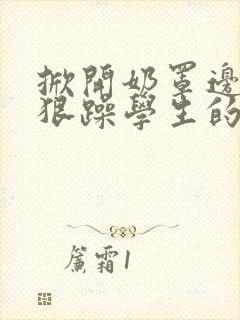 掀開奶罩邊
狠躁學生的
簾霜1